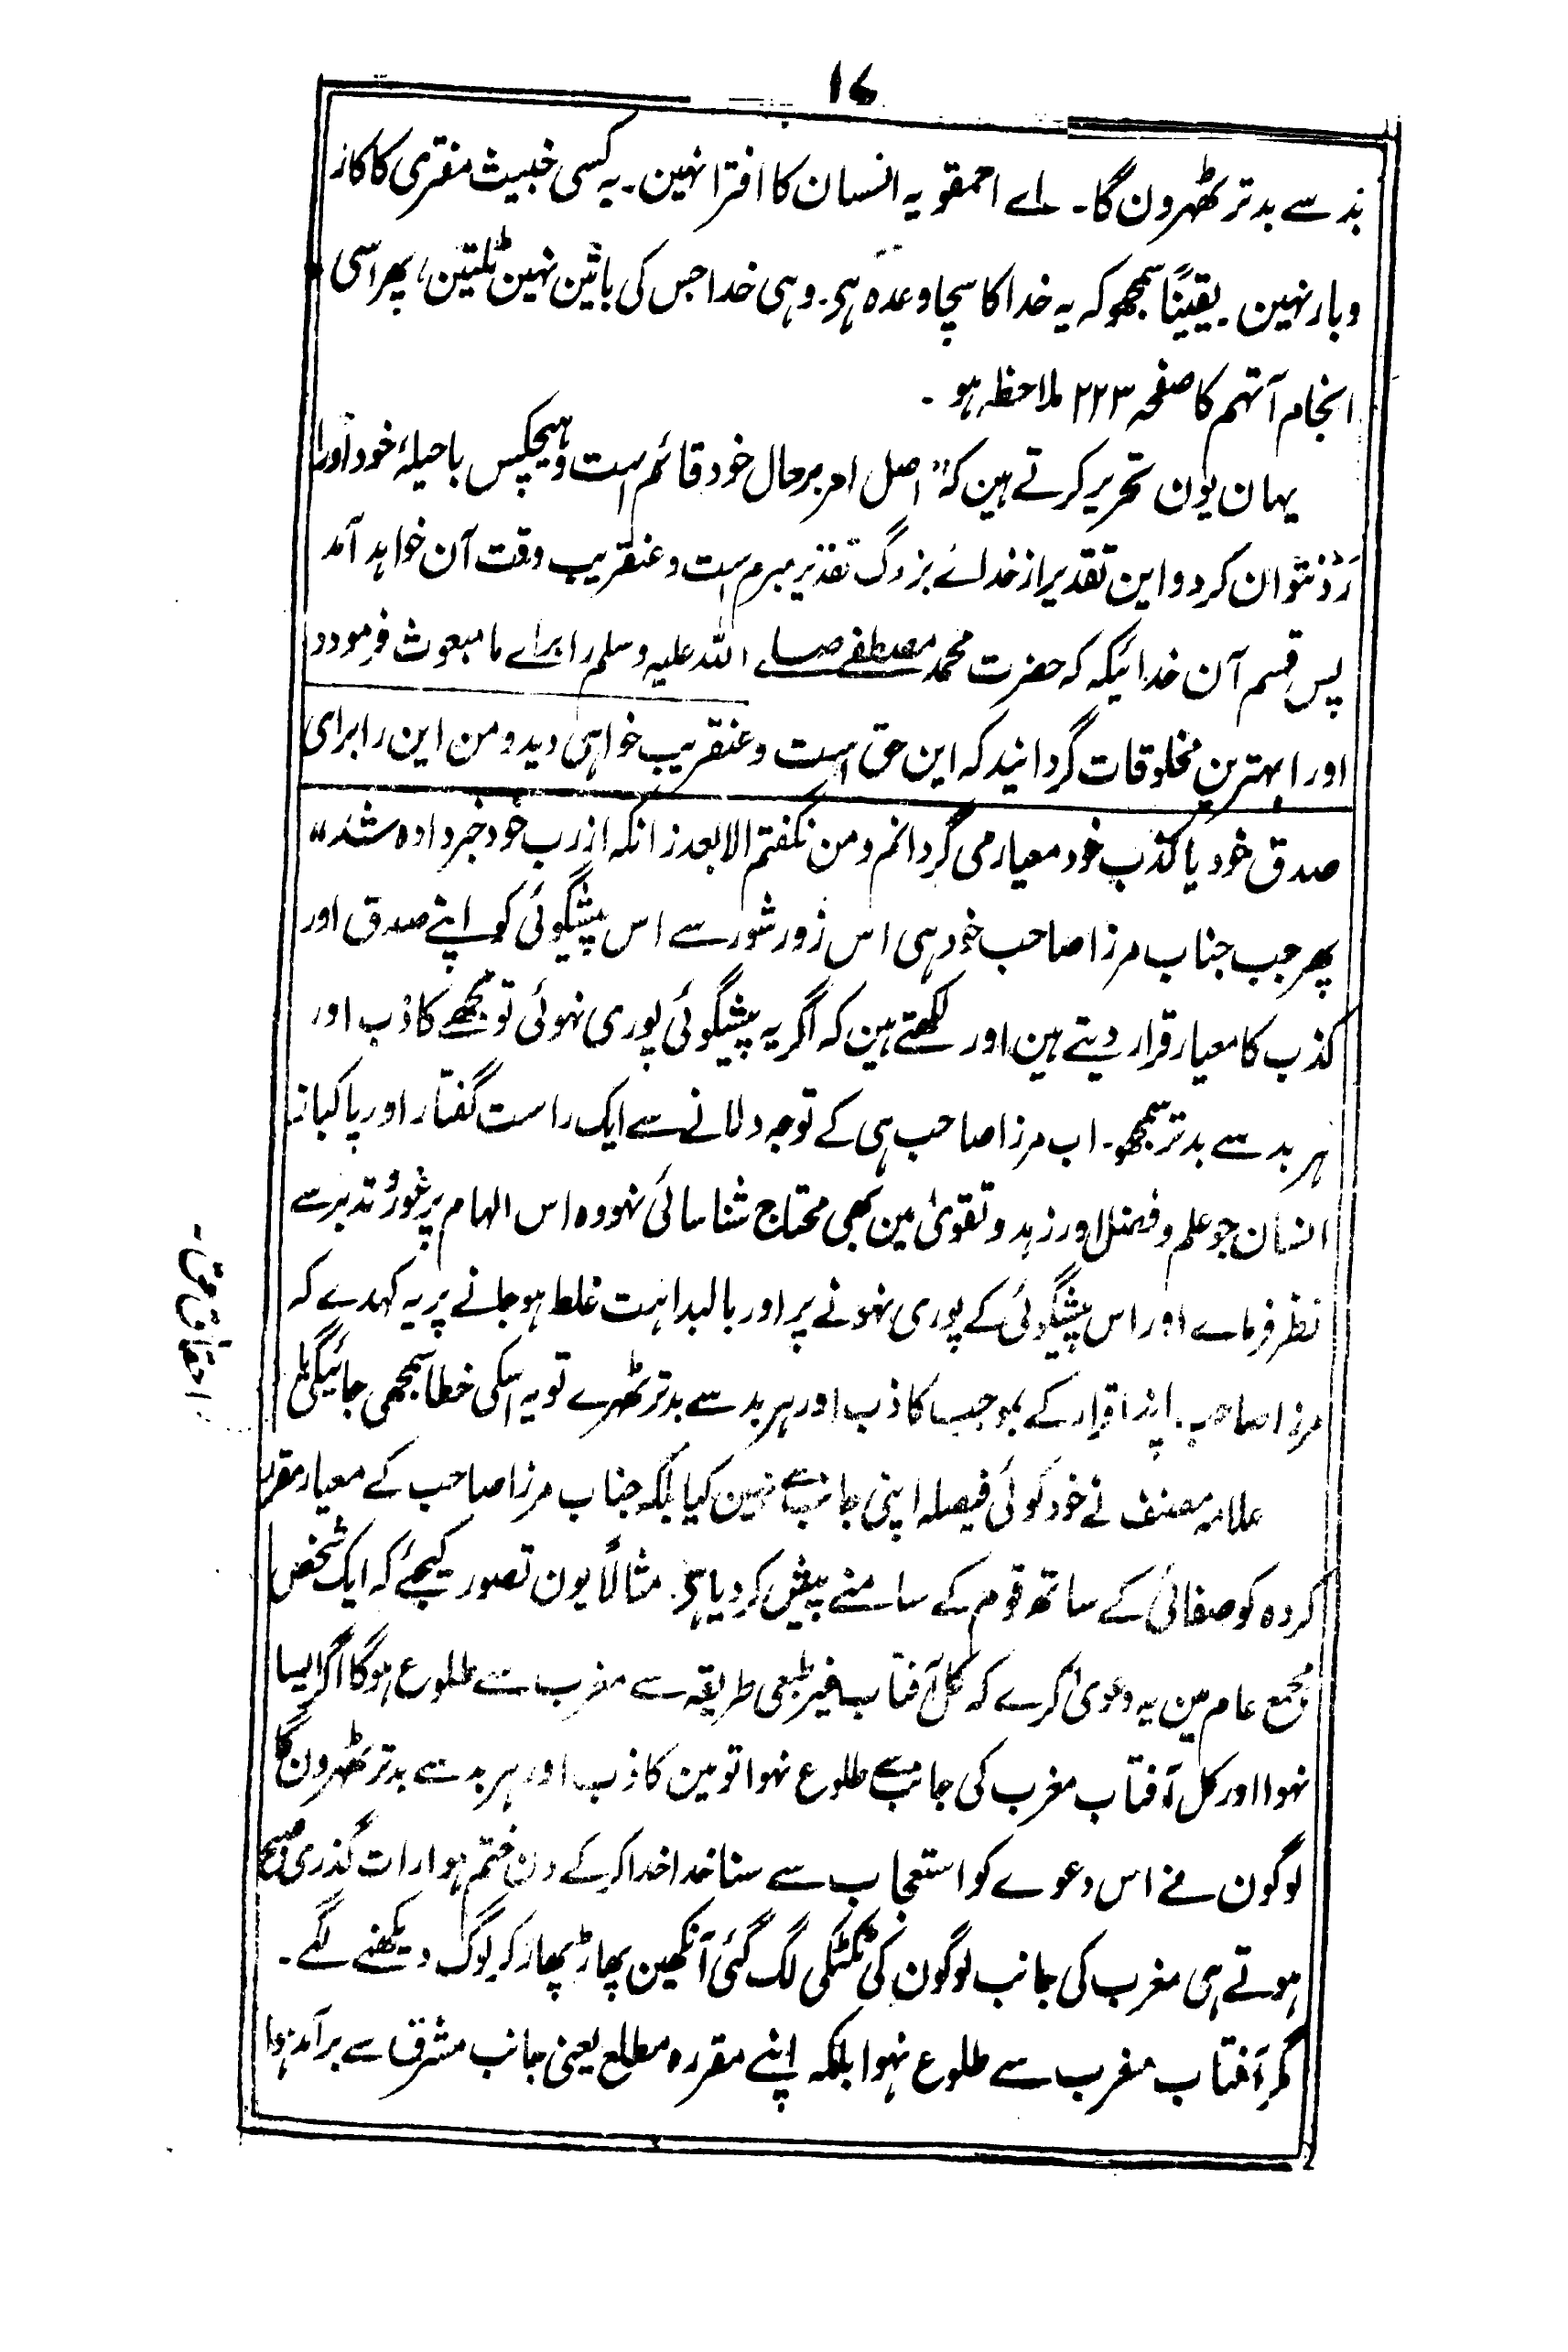 ۱۷
بد سے بدتر ٹھہرون گا۔ اے احمقو یہ انسان کا افترا نہین۔ یہ کسی خبیث مفتری کا کار
وبار نہین۔ یقیناً سمجھو کہ یہ خدا کا سچا وعدہ ہی۔ وہی خدا جس کی باتین نہین ٹلتین، پھر اسی
انجام آتہم کا صفحہ ۲۲۳ ملاحظہ ہو۔
یہان یون تحریر کرتے ہین کہ" اصل امر برحال خود قائم است و ہیچکس باحیلۂ خود اورا
رد نتوان کرد و این تقدیر از خدائے بزرگ تقدیر مبرم است و عنقریب وقت آن خواہد آمد
پس قسم آن خدائیکہ کہ حضرت محمد مصطفے صلے اللہ علیہ وسلم را برائے ما مبعوث فرمود و
اور ا بہترین مخلوقات گردانید کہ این حق است و عنقریب خواہی دید و من این را برای
صدق خود یا کذب خود معیار می گردانم و من نگفتم الا بعد زانکہ از رب خود خبر دادہ شد"
پھر جب جناب مرزا صاحب خود ہی اس زور شور سے اس پیشیگوئی کو اپنے صدق اور
کذب کا معیار قرار دیتے ہین اور لکھتے ہین کہ اگر یہ پیشیگوئی پوری نہوئی تو مجھے کاذب اور
ہر بد سے بدتر سمجھو۔ اب مرزا صاحب ہی کے توجہ دلانے سے ایک راست گفتار اور پاکباز
انسان جو علم و فضل اور زہد و تقویٰ مین بھی محتاج شناسائی نہو وہ اس الہام پر غور و تدبر سے
نظر فرماے اور اس پیشیگوئی کے پوری نہونے پر اور بالبداہت غلط ہو جانے پر یہ کہدے کہ
مرزا صاحب اپنے اقرار کے بموجب کاذب اور ہر بد سے بدتر ٹھہرے تو یہ اسکی خطا سمجھی جائیگی
علامہ مصنف نے خود کوئی فیصلہ اپنی جانب سے نہین کیا بلکہ جناب مرزا صاحب کے معیار مقرر
کردہ کو صفائی کے ساتھ قوم کے سامنے پیش کر دیا ہی۔ مثالاً یون تصور کیجئے کہ ایک شخص
مجمع عام مین یہ دعویٰ کرے کہ کل آفتاب غیر طبعی طریقہ سے مغرب سے طلوع ہوگا اگر ایسا
نہوا اور کل آفتاب مغرب کی جانب سے طلوع نہوا تو مین کاذب اور ہر بد سے بدتر ٹھہرون گا
لوگون نے اس دعوے کو استعجاب سے سنا خدا خدا کر کے دن ختم ہوا رات گذری صبح
ہوتے ہی مغرب کی جانب لوگون کی ٹکٹکی لگ گئی آنکھین پھاڑ پھاڑ کر لوگ دیکھنے لگے۔
مگر آفتاب مغرب سے طلوع نہوا بلکہ اپنے مقررہ مطلع یعنی جانب مشرق سے برآمد ہوا
احقاق حق۔